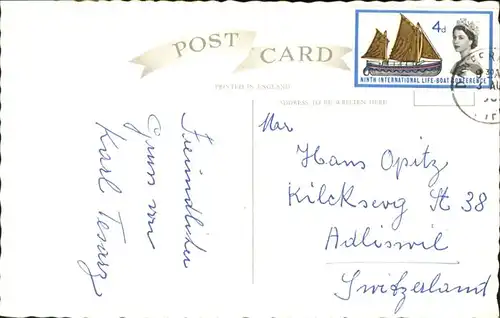 POST CARD
PRINTED IN ENGLAND
ADDRESS TO BE WRITTEN HERE
4d
NINTH INTERNATIONAL LIFE-BOAT CONFERENCE
Freundlicher
Gruss von
Karl Tesarz
Hans Opitz
Kilcksevg St 38
Adliswil
Switzerland